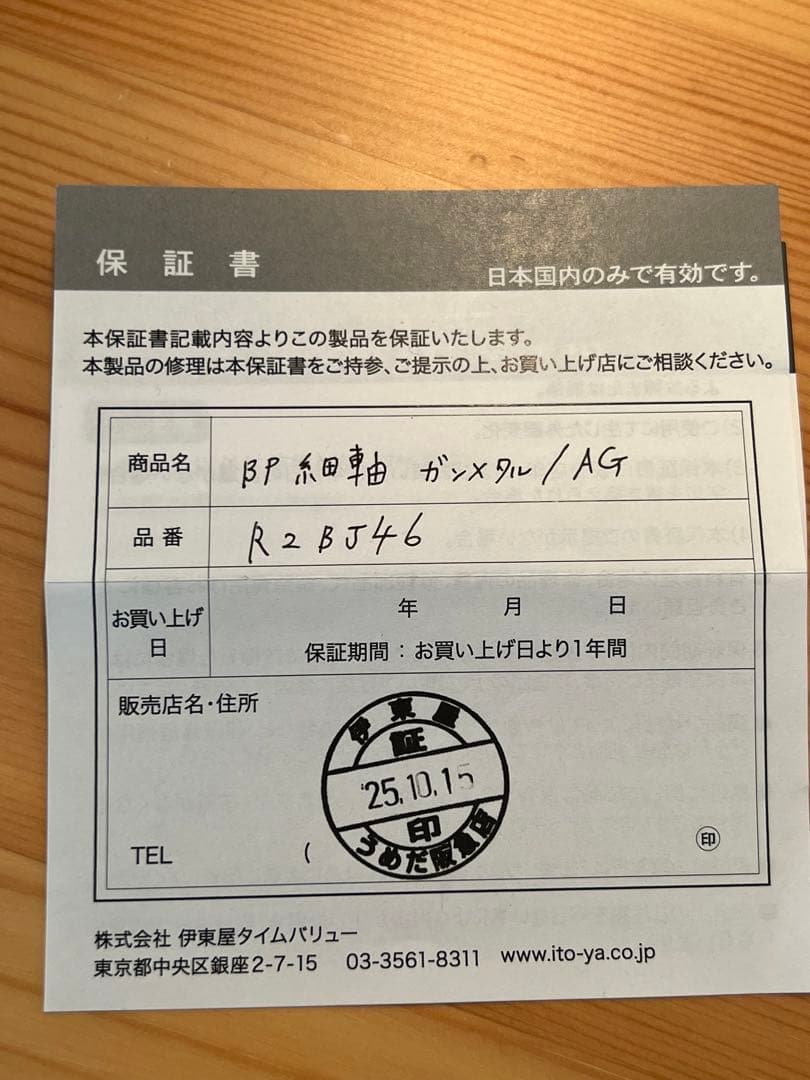 保証書
日本国内のみで有効です。
本保証書記載内容よりこの製品を保証いたします。
本製品の修理は本保証書をご持参、ご提示の上、お買い上げ店にご相談ください。
商品名 BP 細軸 ガンメタル/AG
品番 R2BJ46
お買い上げ日 年 月 日
保証期間：お買い上げ日より1年間
販売店名・住所
伊東屋
証
'25.10.15
印
うめだ阪急店
TEL (
印
株式会社 伊東屋タイムバリュー
東京都中央区銀座2-7-15 03-3561-8311 www.ito-ya.co.jp